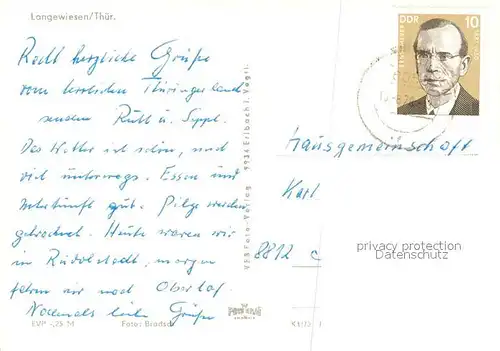 Langewiesen/Thür.
Recht herzliche Grüße
vom herrlichen Thüringer Land
senden Ruth u. Seppl.
Das Wetter ist schön, und
viel unterwegs. Essen und
Unterkunft gut. Pilze werden
getrocknet. Heute waren wir
in Rudolstadt, morgen
fahren wir nach Oberhof.
Nochmals liebe Grüße
EVP -,25 M
Foto: Brodsch
VEB Foto-Verlag 9934 Erlbach i. Vogtl.
DDR
10
Hausgemeinschaft
Karl
8812
privacy protection
Datenschutz